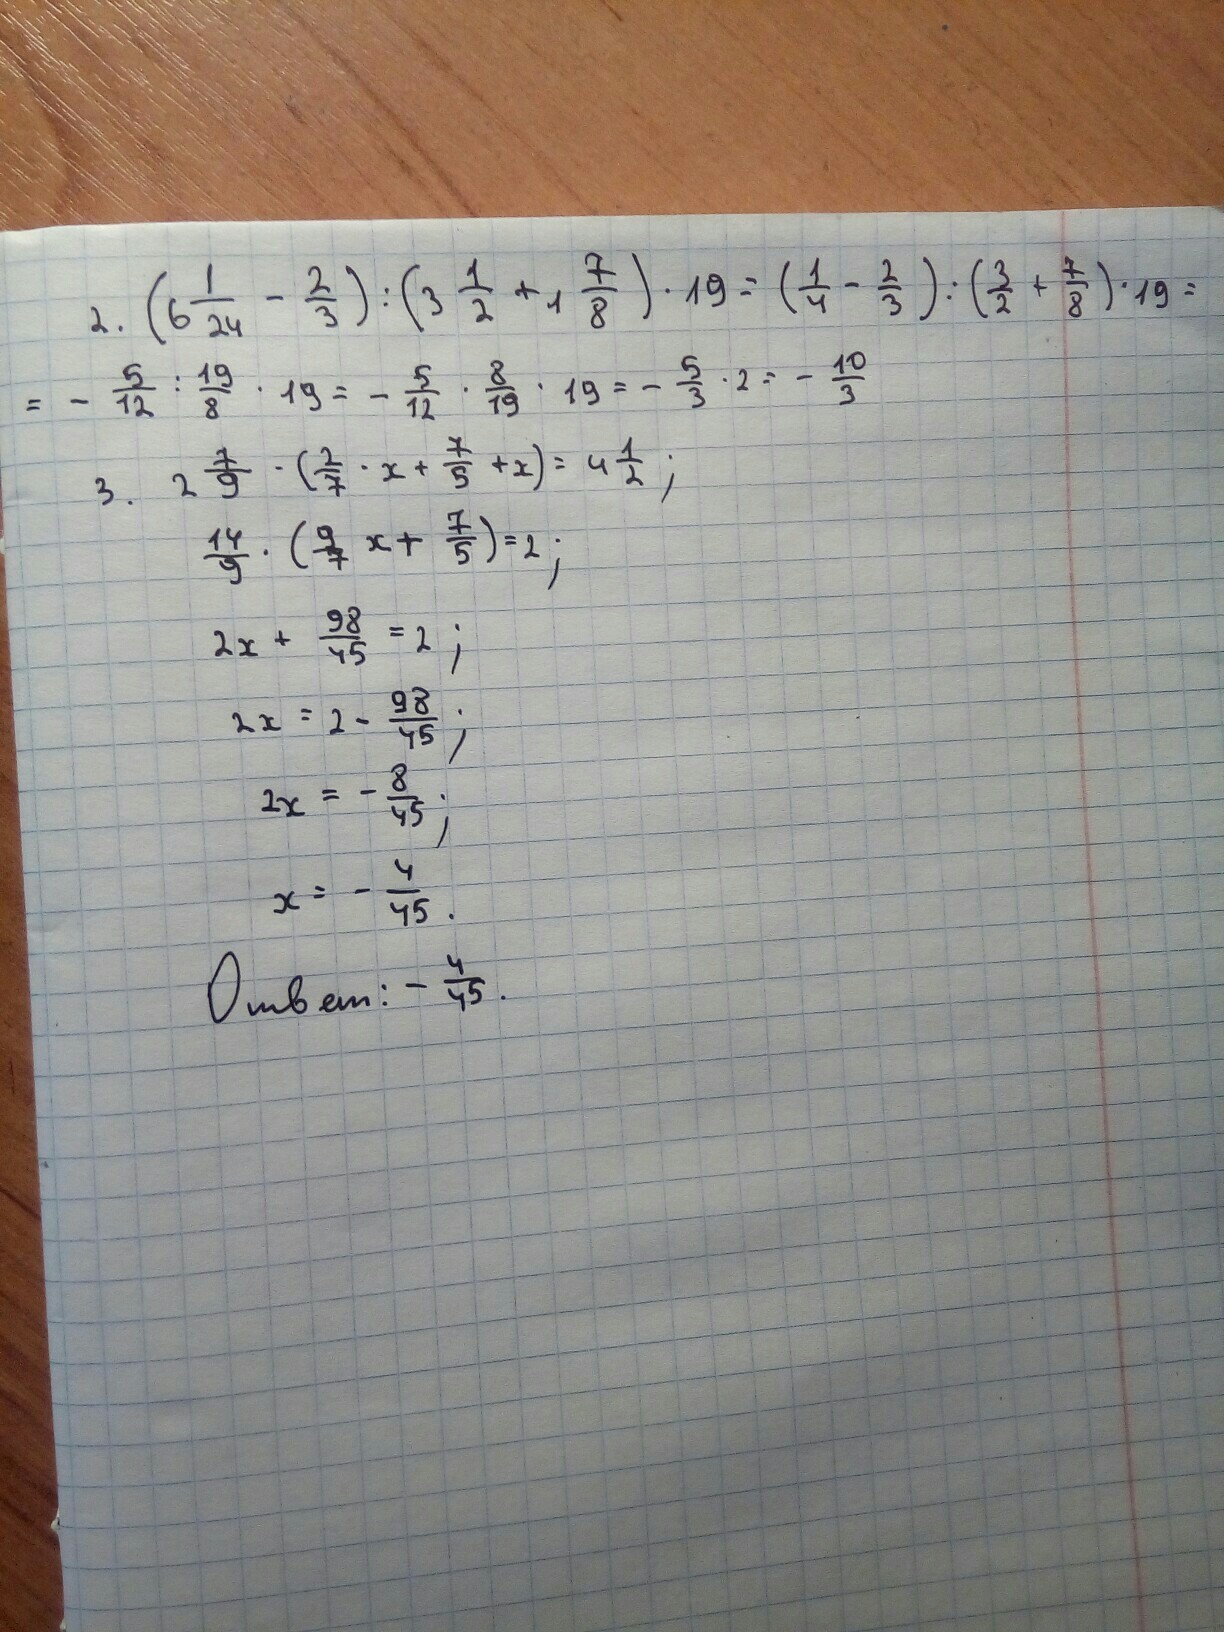 2. (6 1/24 - 2/3) : (3 1/2 + 1 7/8) · 19 = (1/4 - 2/3) : (3/2 + 7/8) · 19 =
= - 5/12 : 19/8 · 19 = - 5/12 · 8/19 · 19 = - 5/3 · 2 = - 10/3
3. 2 7/9 · (2/7 · x + 7/5 + x) = 4 1/2 ;
14/9 · (9/7 x + 7/5) = 2 ;
2x + 98/45 = 2 ;
2x = 2 - 98/45 ;
2x = - 8/45 ;
x = - 4/45 .
Ответ: - 4/45 .